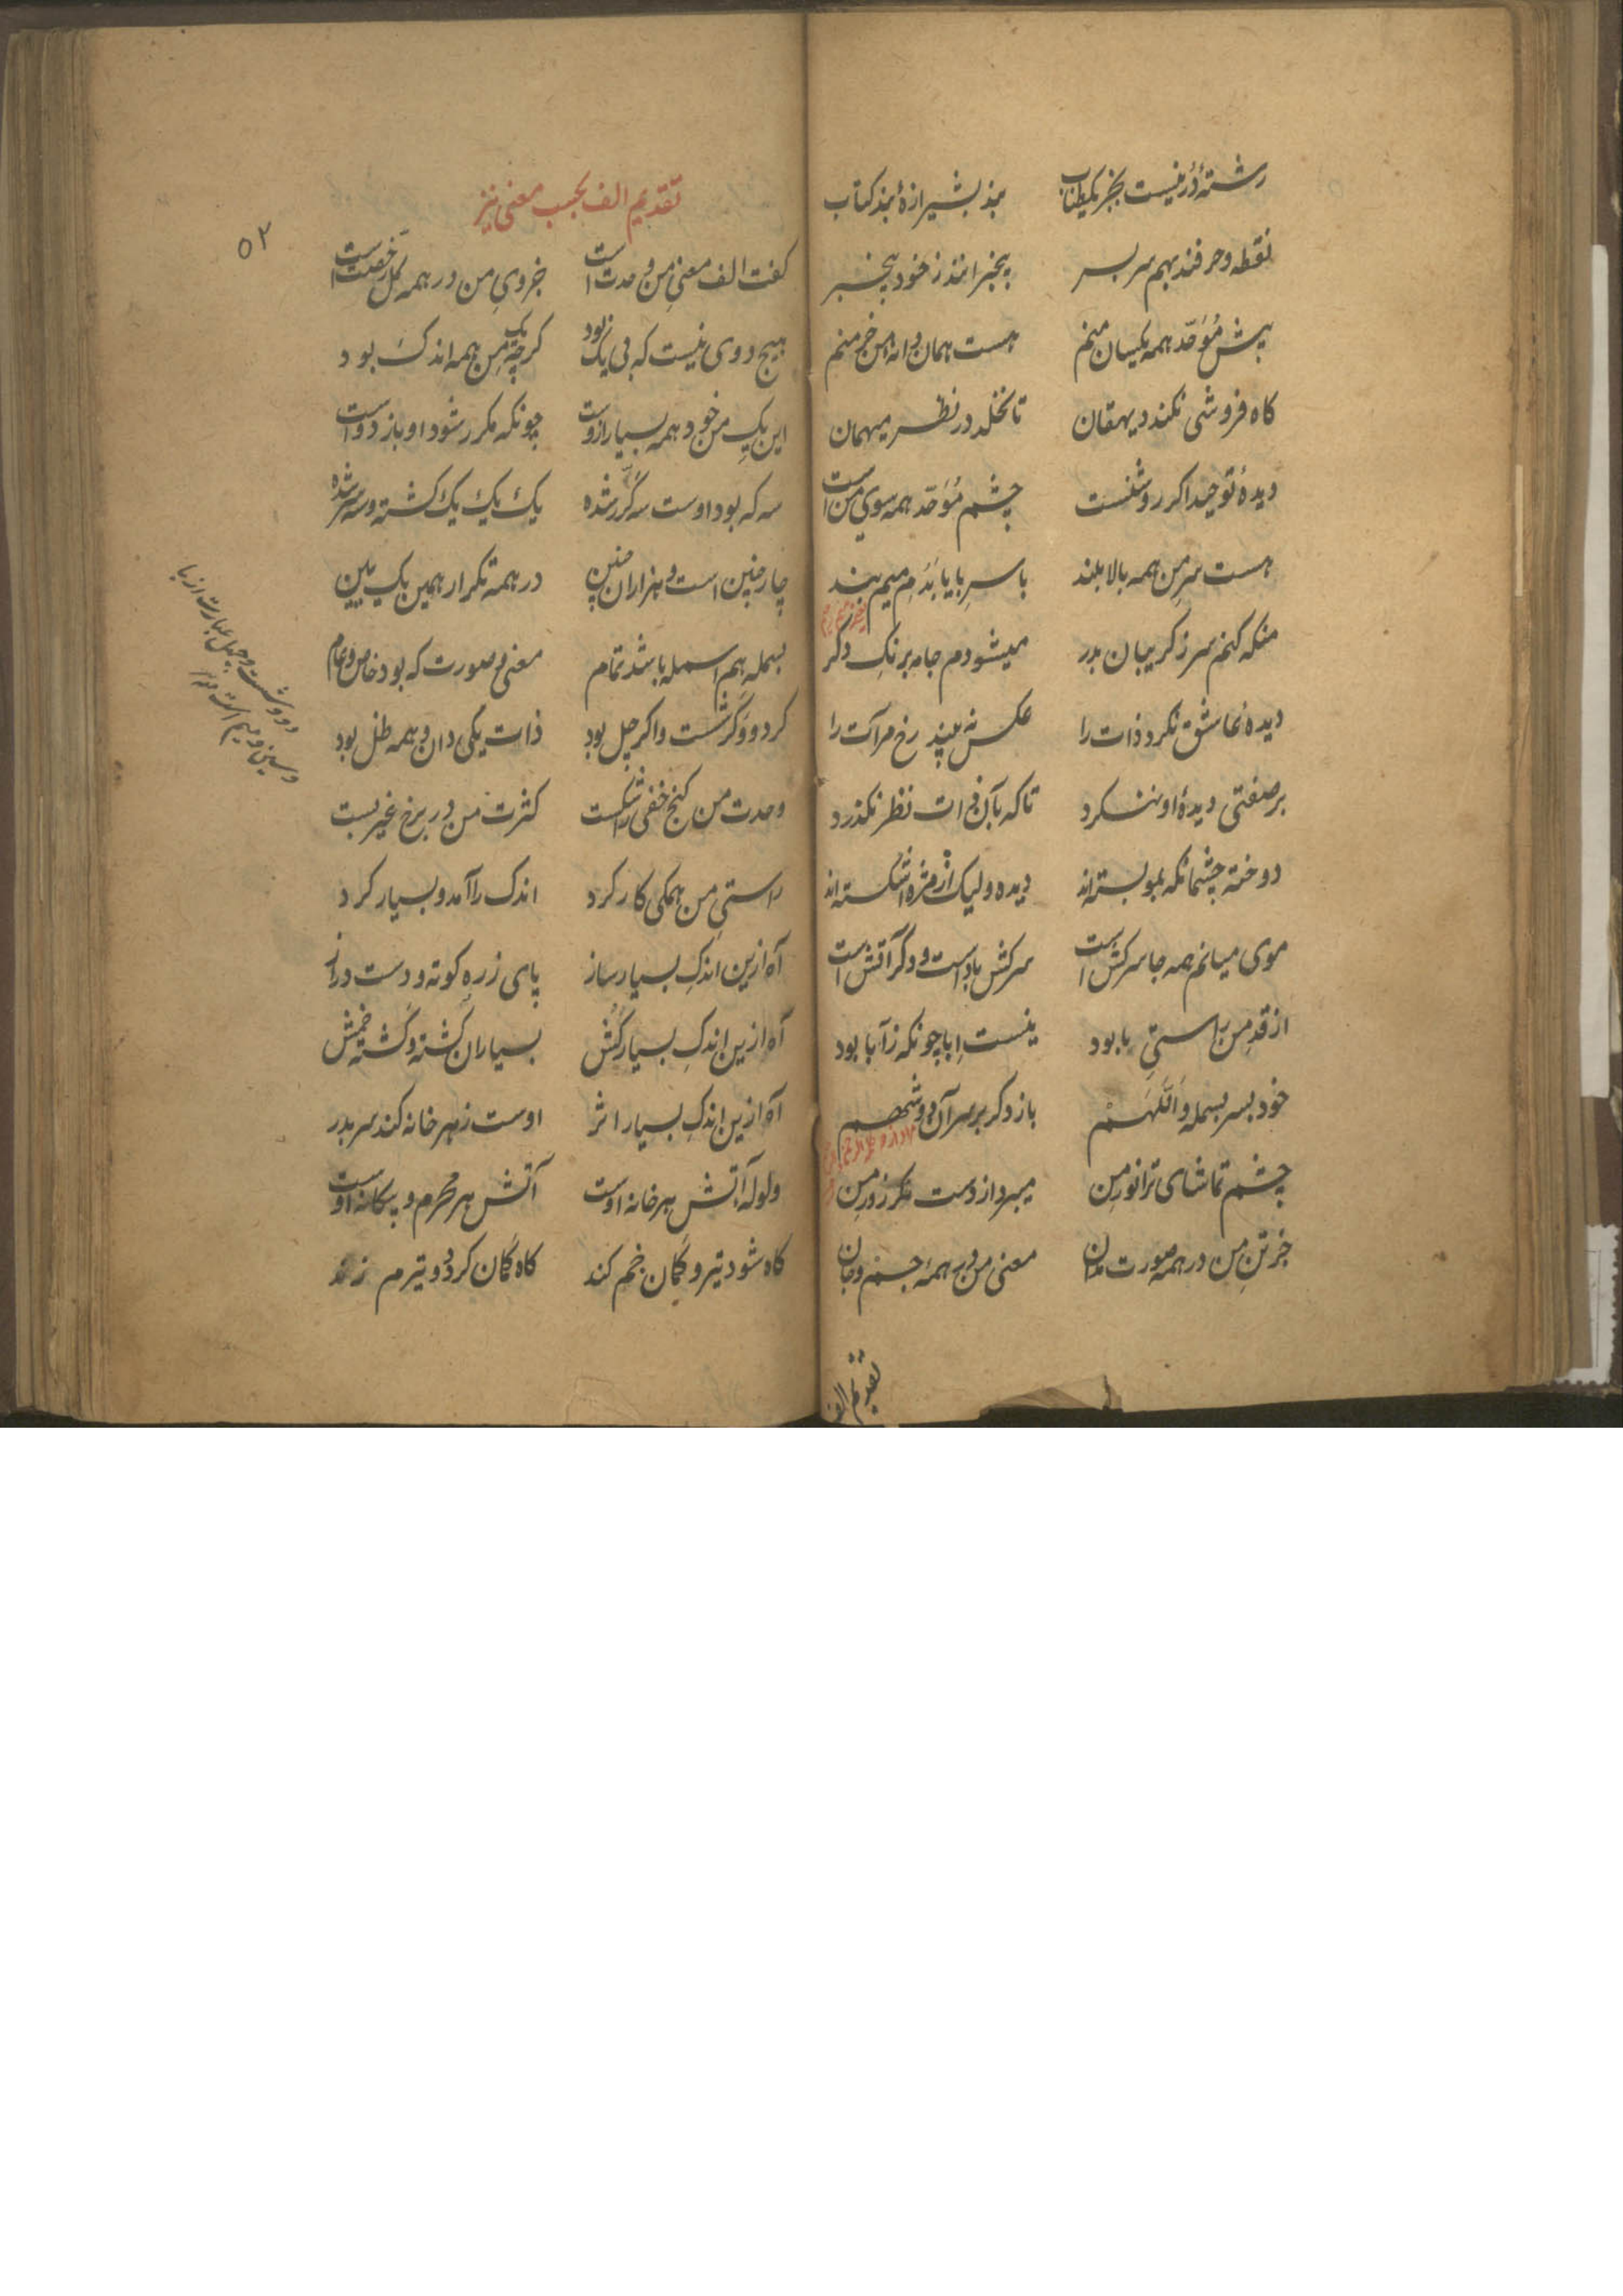 رشتهٔ دُر نیست بجز یکطناب بند بشیرازهٔ بند کتاب
نقطه و حرفند بهم سربسر بیخبرانند ز خود بیخبر
پیش مُوَحّد همه یکسان منم هست همان دانه و خرمن منم
کاه فروشی نکند دیهقان تا نخلد در نظر میهمان
دیدهٔ توحید اکر روشنست چشم مُوَحّد همه سوی من است
هست سرِ من همه بالا بلند با سرِ با یا بَدُم میم بند
منکه کنم سر ز کریبان بدر میشودم جامه برنکِ دکر
دیدهٔ عاشق نکرد ذات را عکس نه بیند رخ مرآت را
بر صفتی دیدهٔ او ننکرد تا که بآن ذات نظر نکذرد
دوخته چشمانکه بمو بسته‌اند دیده ولیک از مژه اشکسته‌اند
موی میانم همه جا سرکش است سرکش باد است و دکر آتش است
از قدِ من راستیِ با بود نیست اِبا چونکه ز آبا بود
خود بسرِ بسمله و اللّهم باز دکر بر سرِ آن دو شهم
چشم تماشای ترا نور من میبرد از دست مکر زور من
جز تنِ من در همه صورت مدان معنی من در همه جسم و جان
تقدیم الف
تقدیم الف بحسب معنی نیز
۵۲
کفت الف معنیِ من وحدت است جزویِ من در همه کل رخصت است
هیچ دوی نیست که بی یک بود کرچه یک من همه اندک بود
این یکِ من خود همه بسیار ازوست چونکه مکرر شود او باز دوست
سه که بود اوست سه کَرّر شده یک یک یک کشته و سه سر شده
چار چنین است و هزاران چنین در همه تکرار همین یک ببین
بسمله هم اسمله باشد تمام معنی و صورت که بود خاص و عام
کر دو و کر شست و اکر چل بود ذات یکی دان و همه ظل بود
وحدت من کنج خفی را شکست کثرت من در برخ غیر بست
راستیِ من همکی کار کرد اندک را آمد و بسیار کرد
آه ازین اندکِ بسیار ساز پای ز ره کوته و دست دراز
آه ازین اندکِ بسیار کُش بسیاران کُشته و کَشته خمش
آه ازین اندکِ بسیار اثر اوست ز هر خانه کند سر بدر
ولولهٔ آتش هر خانه اوست آتش هر محرم و بیکانه اوست
کاه شود تیر و کمان خم کند کاه کمان کردد و تیرم زند
دو و شست و چهل عبارت از با
و سین و میم است